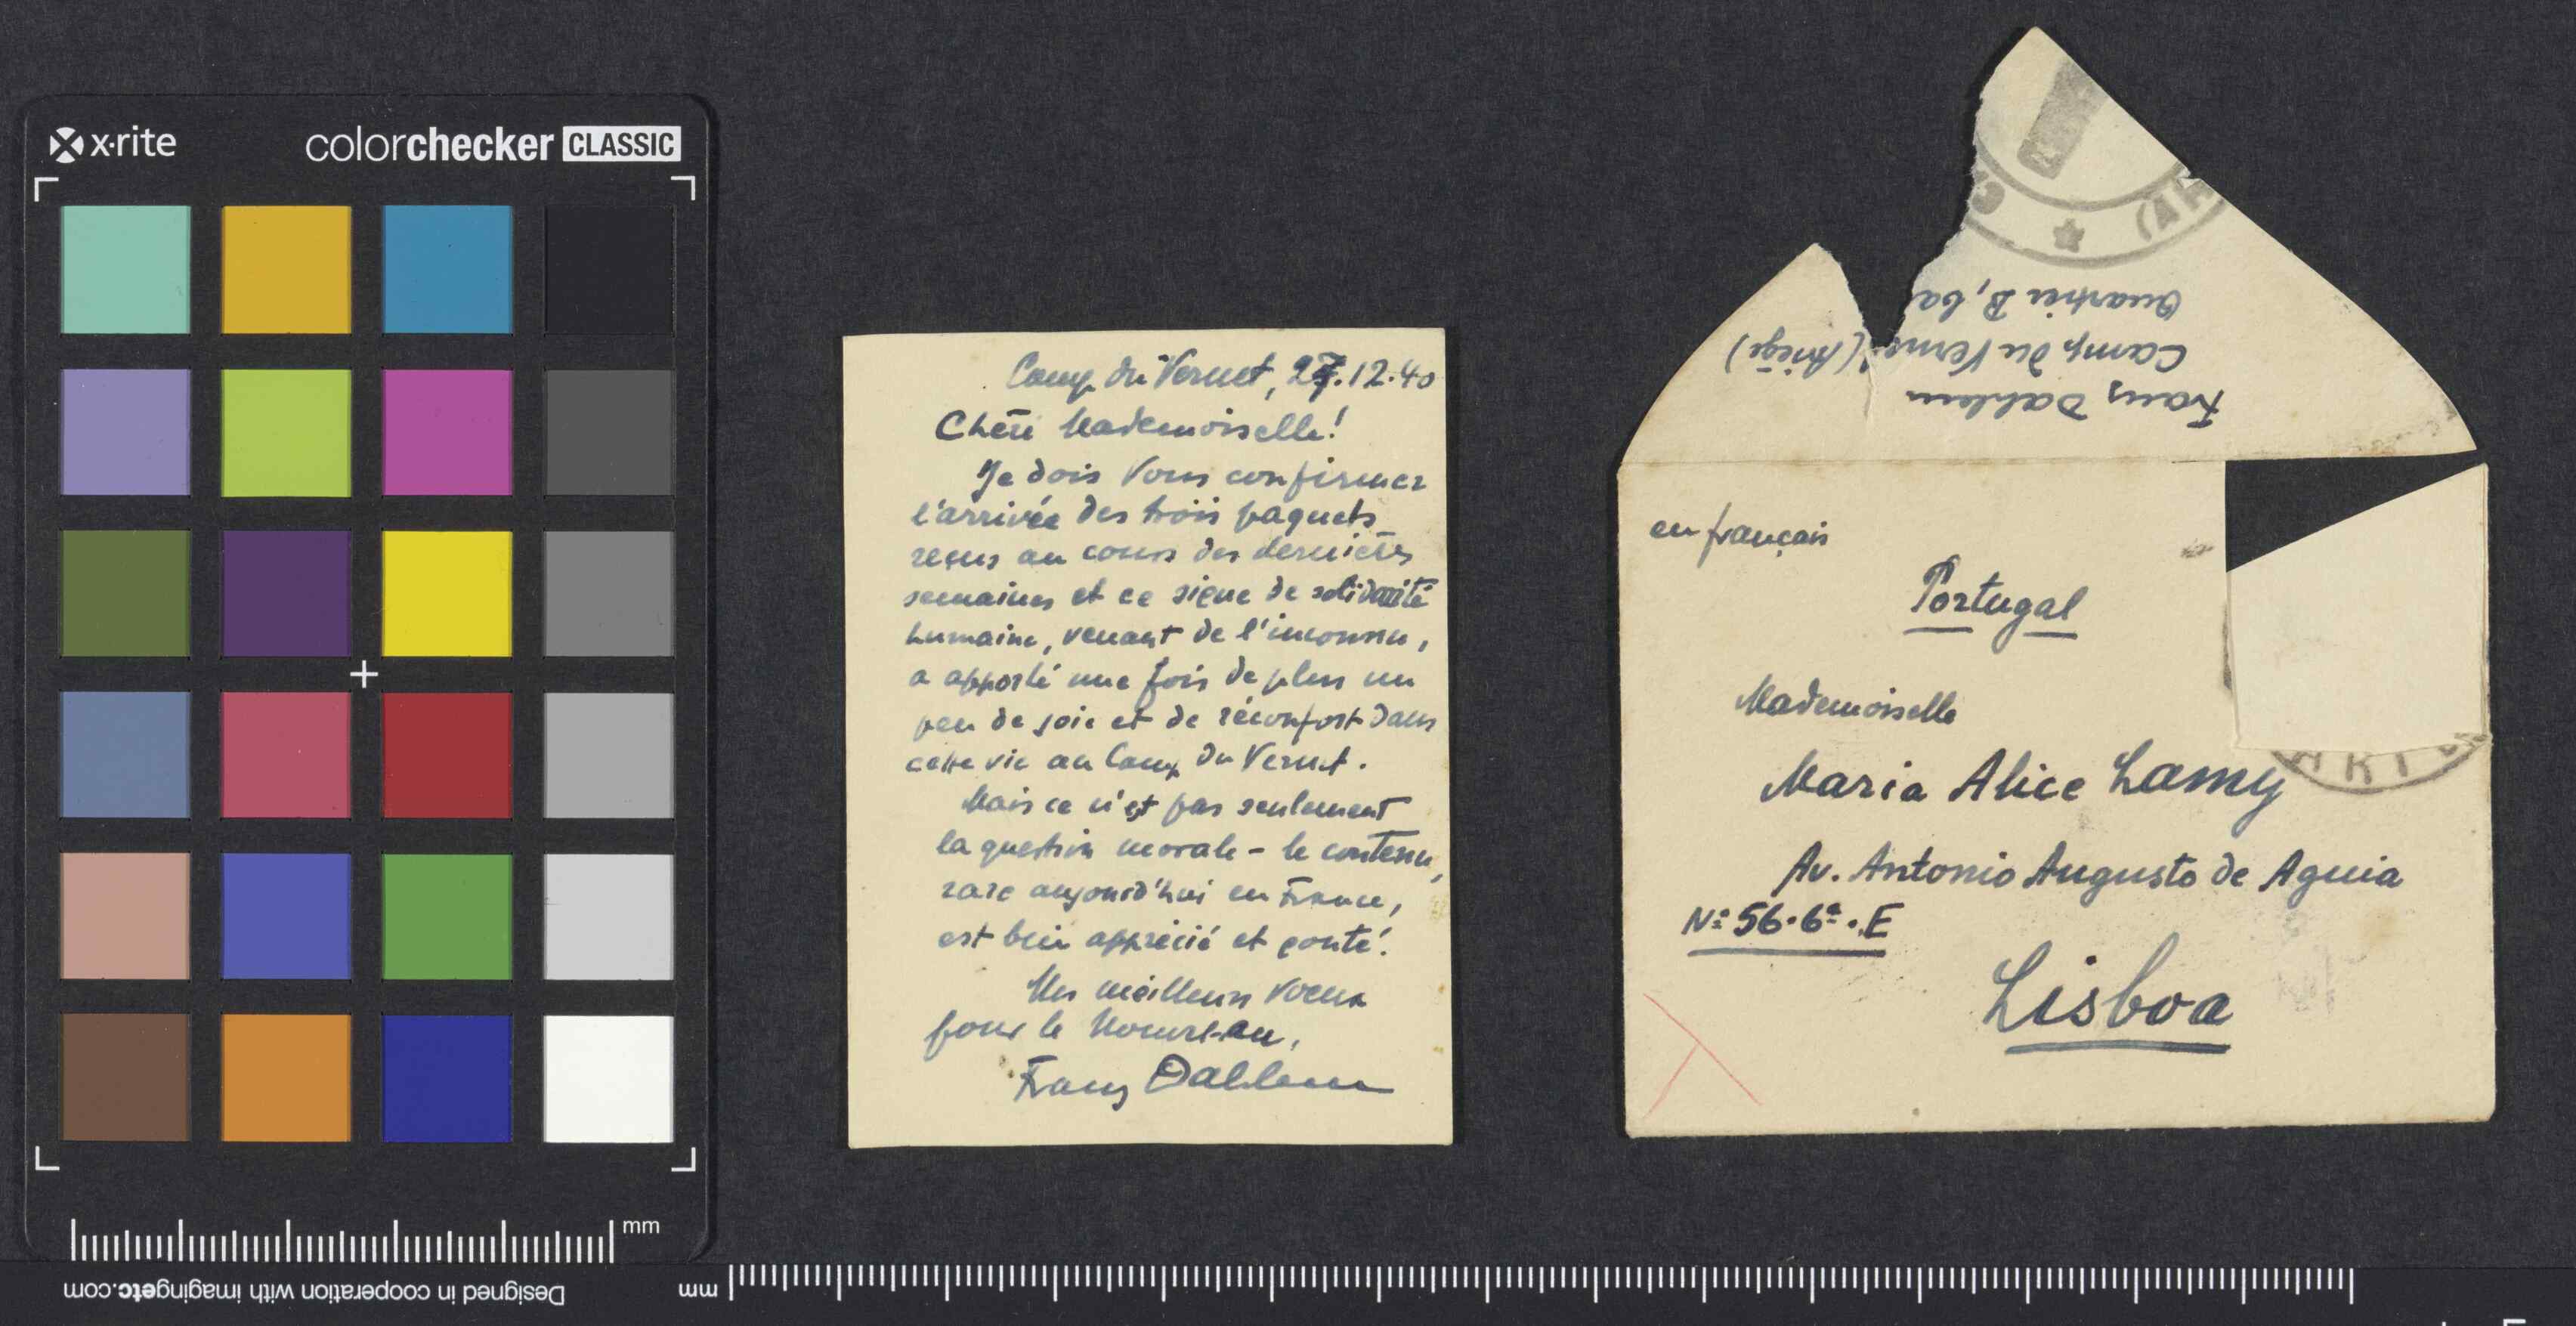 x·rite
colorchecker CLASSIC
mm
Designed in cooperation with imagingetc.com
mm
Camp du Vernet, 27.12.40
Chère Mademoiselle!
Je dois Vous confirmer
l'arrivée des trois paquets
reçus au cours des dernières
semaines et ce signe de solidarité
humaine, venant de l'inconnu,
a apporté une fois de plus un
peu de joie et de réconfort dans
cette vie au Camp du Vernet.
Mais ce n'est pas seulement
la question morale - le contenu,
rare aujourd'hui en France,
est bien apprécié et goûté.
Mes meilleurs voeux
pour le Nouvel-an,
Franz Dahlem
(AR
Franz Dahlem
Camp du Verne (Ariège)
Quartier B, ba
en français
Portugal
Mademoiselle
Maria Alice Lamy
Av. Antonio Augusto de Aguia
Nº 56·6º·E
Lisboa